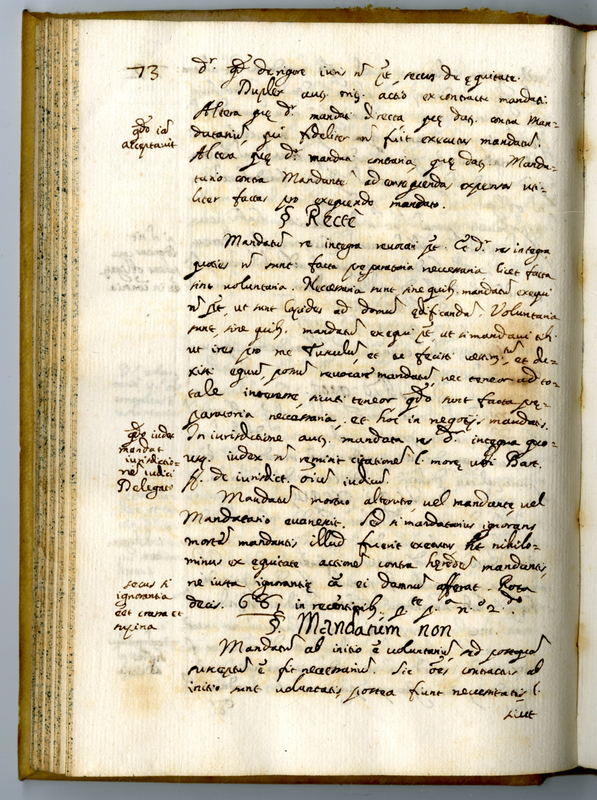 73
dr. de rigore iuris nõ pt, secus de ęquitate.
Duplex aut. oritr. actio ex contractu mandati.
Altera quę dr. mandati directa quę datr. contra Man=
datariũ, qui fideliter nõ fuit executus mandatũ.
Altera quę dr. mandati contraria, quę datr. Manda=
tario contra Mandantẽ ad consequendas expensas uti=
liter factas pro exequendo mandato.
§ Rectè
Mandatũ re integra reuocari pt. Et dr. res integra
quoties nõ sunt facta pręparatoria necessaria licet facta
sint uoluntaria. Necessaria sunt sine quib. mandatũ exequi
nõ pt, ut sunt lapides ad domũ ędificandã. Voluntaria
sunt, sine quib. mandatũ exequi pt ut si mandaui tibi
ut ires pro me Tusculũ, et tu fecisti uestimtũ, et du=
xisti equũ, possũ reuocare mandatũ, nec teneor ad to=
tale interesse, sicuti teneor qdo sunt facta prę=
paratoria necessaria, et hoc in negotijs mandatis.
In iurisdictione aut. mandata res dr. integra quo=
usq. iudex nõ remisit citationẽ l. more, ubi Bart.
ff. de iurisdict. oĩum iudicũ.
Mandatũ morte alterutro, uel mandante, uel
Mandatario euanescit. Sed si mandatarius ignorans
mortẽ mandantis illud fuerit executus nihilo=
minus ex ęquitate actionẽ contra hęredẽ mandantis,
ne iusta ignorantię cã ei damnũ afferat. Rota
decis. 661 in recentiorib. pte. pa. n. 2.
§. Mandatum non
Mandatũ ab initio ẽ uoluntariũ, sed postquã
susceptũ ẽ fit necessariũ. Sic oẽs contractus ab
initio sunt uoluntatis postea fiunt necessitatis l.
sicut
qdo iã
acceptauit
qdo iudex
mandat
iurisdictio=
nẽ iudici
Delegato
secus si
ignorantia
est crassa et
supina